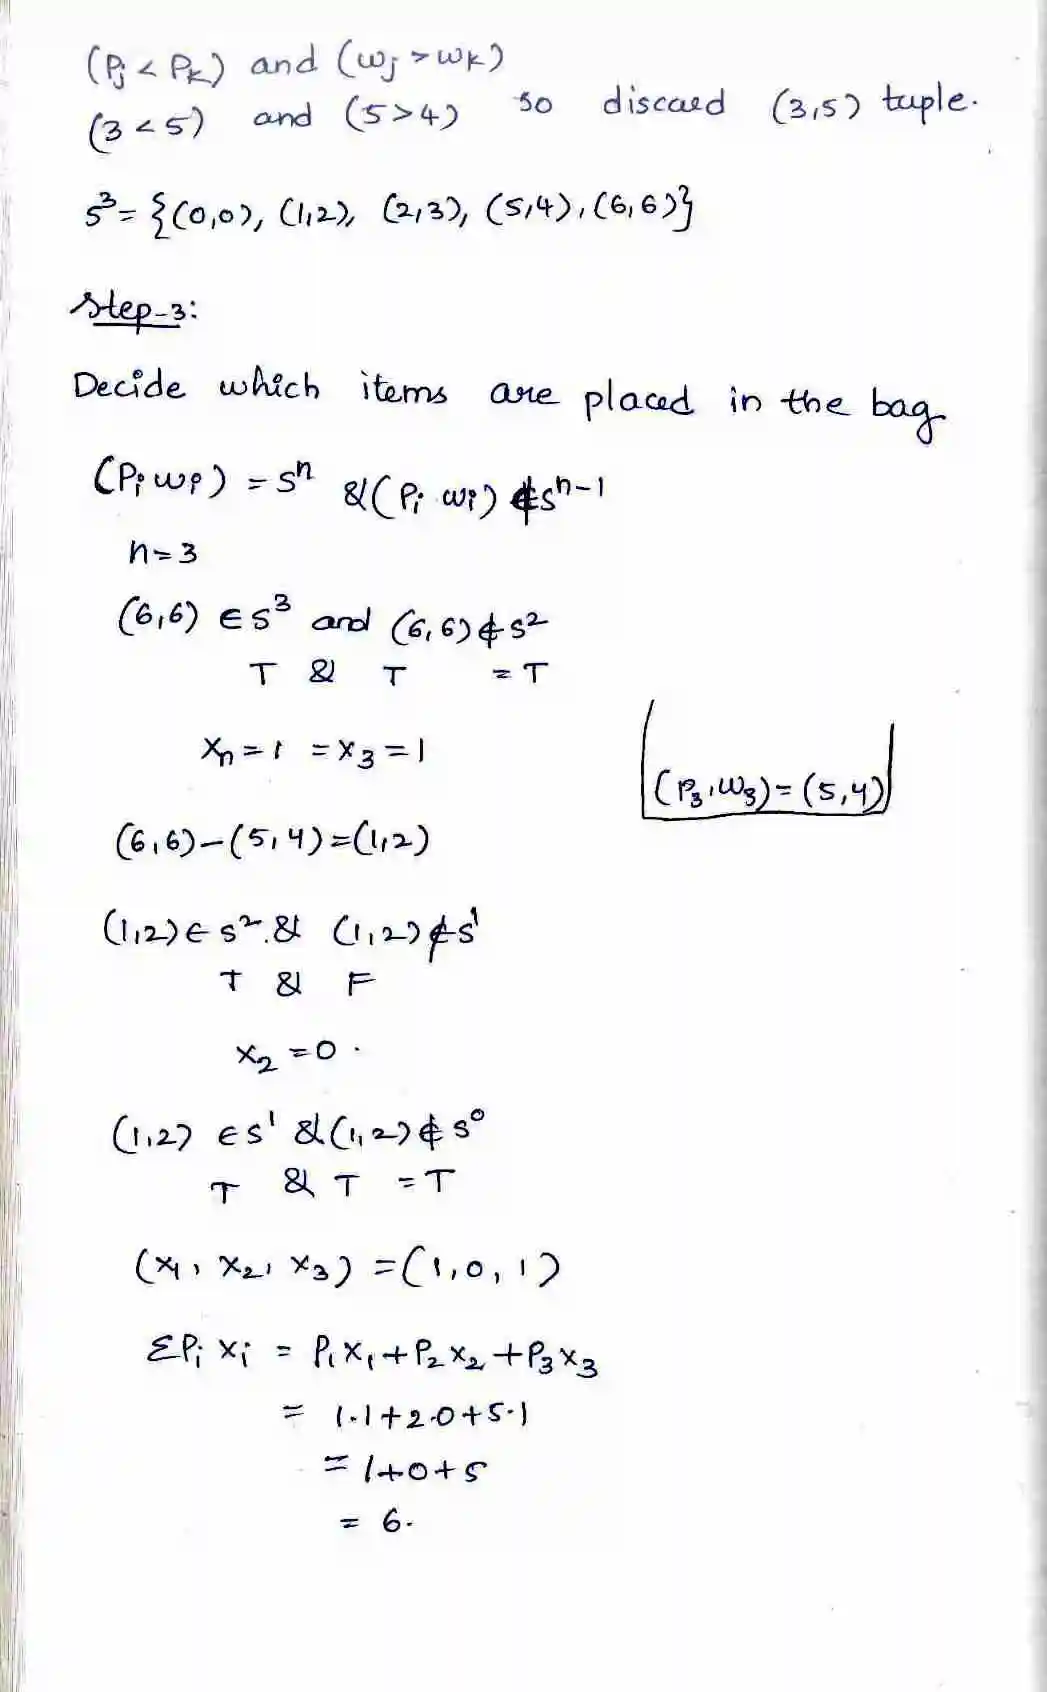 (Pj < Pk) and (wj > wk)
(3 < 5) and (5 > 4) so discard (3,5) tuple.
S³ = {(0,0), (1,2), (2,3), (5,4), (6,6)}
Step-3:
Decide which items are placed in the bag
(Pi wi) = Sⁿ & (Pi wi) ∉ Sⁿ⁻¹
n = 3
(6,6) ∈ S³ and (6,6) ∉ S²
T & T = T
Xn = 1 = X3 = 1
(P3, W3) = (5,4)
(6,6) – (5,4) = (1,2)
(1,2) ∈ S² & (1,2) ∉ S¹
T & F
X2 = 0.
(1,2) ∈ S¹ & (1,2) ∉ S⁰
T & T = T
(X1, X2, X3) = (1, 0, 1)
ΣPi Xi = P1X1 + P2X2 + P3X3
= 1·1 + 2·0 + 5·1
= 1 + 0 + 5
= 6.